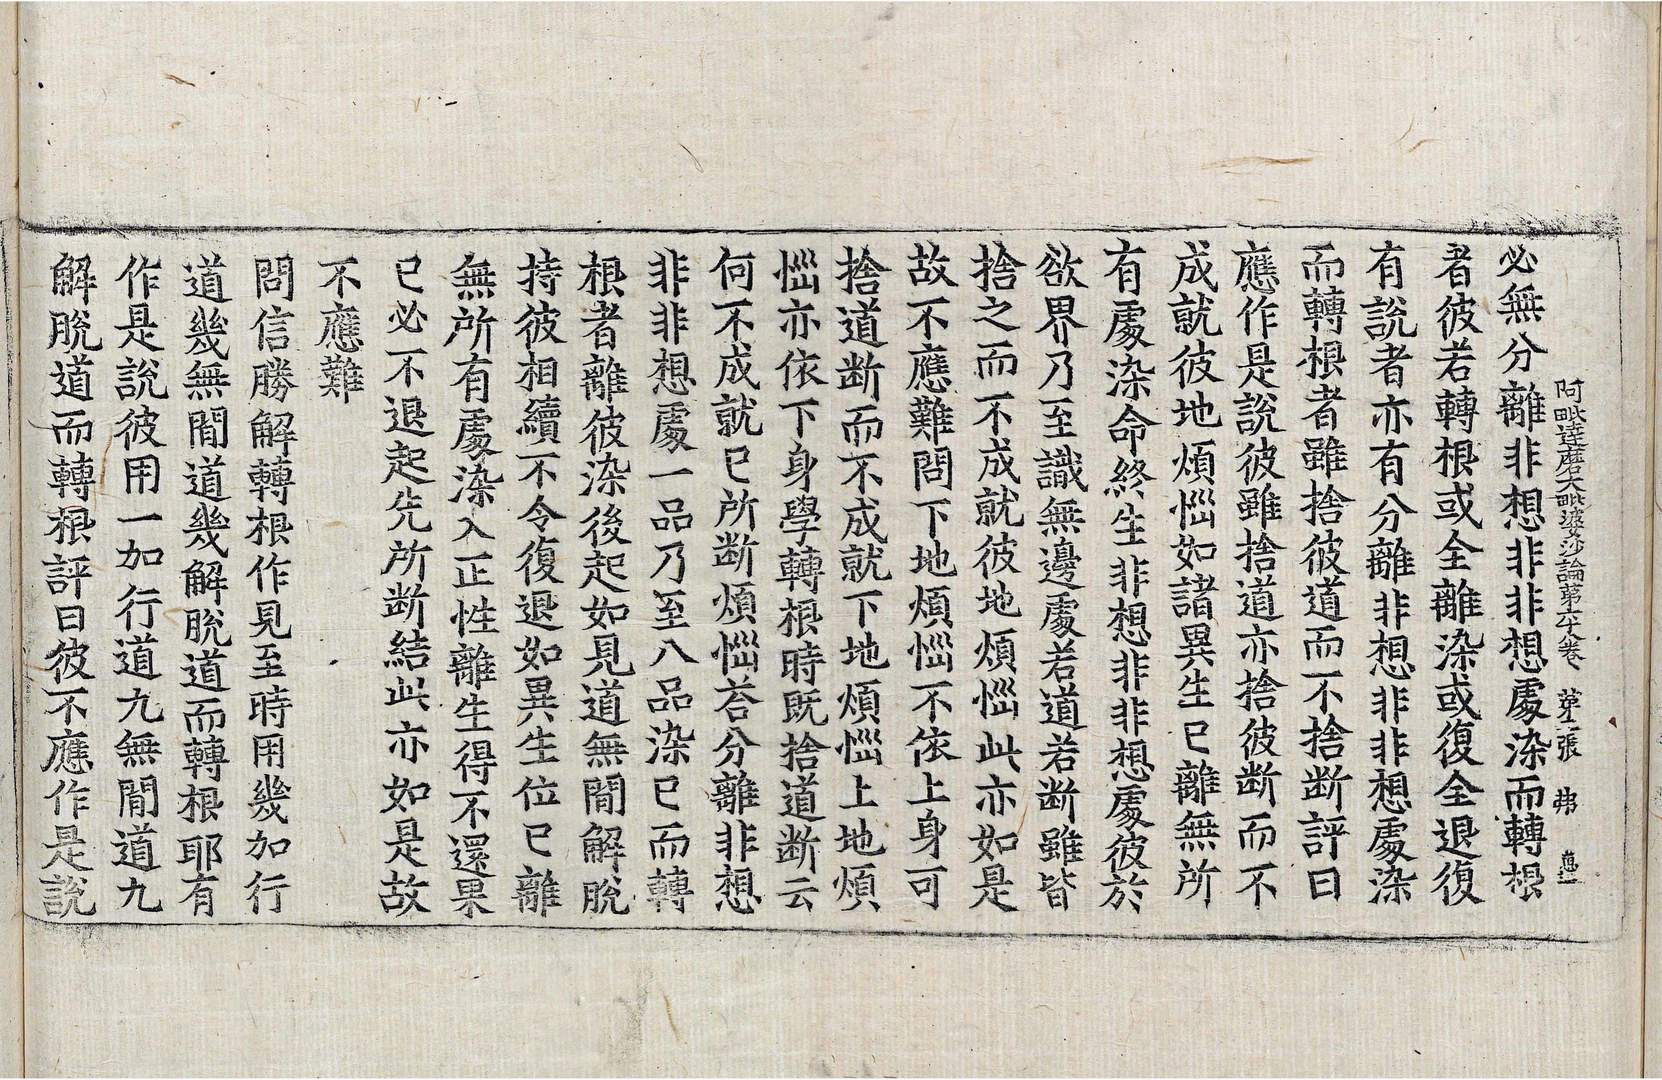 阿毗達磨大毗婆沙論第六十八卷 第二張 弗
必無分離非想非非想處染而轉根
者彼若轉根或全離染或復全退復
有說者亦有分離非想非非想處染
而轉根者雖捨彼道而不捨断評曰
應作是說彼雖捨道亦捨彼断而不
成就彼地煩惱如諸異生已離無所
有處染命終生非想非非想處彼於
欲界乃至識無邊處若道若断雖皆
捨之而不成就彼地煩惱此亦如是
故不應難問下地煩惱不依上身可
捨道断而不成就下地煩惱上地煩
惱亦依下身學轉根時既捨道断云
何不成就已所断煩惱荅分離非想
非非想處一品乃至八品染已而轉
根者離彼染後起如見道無閒解脫
持彼相續不令復退如異生位已離
無所有處染入正性離生得不還果
已必不退起先所断結此亦如是故
不應難
問信勝解轉根作見至時用幾加行
道幾無閒道幾解脫道而轉根耶有
作是說彼用一加行道九無閒道九
解脫道而轉根評曰彼不應作是說